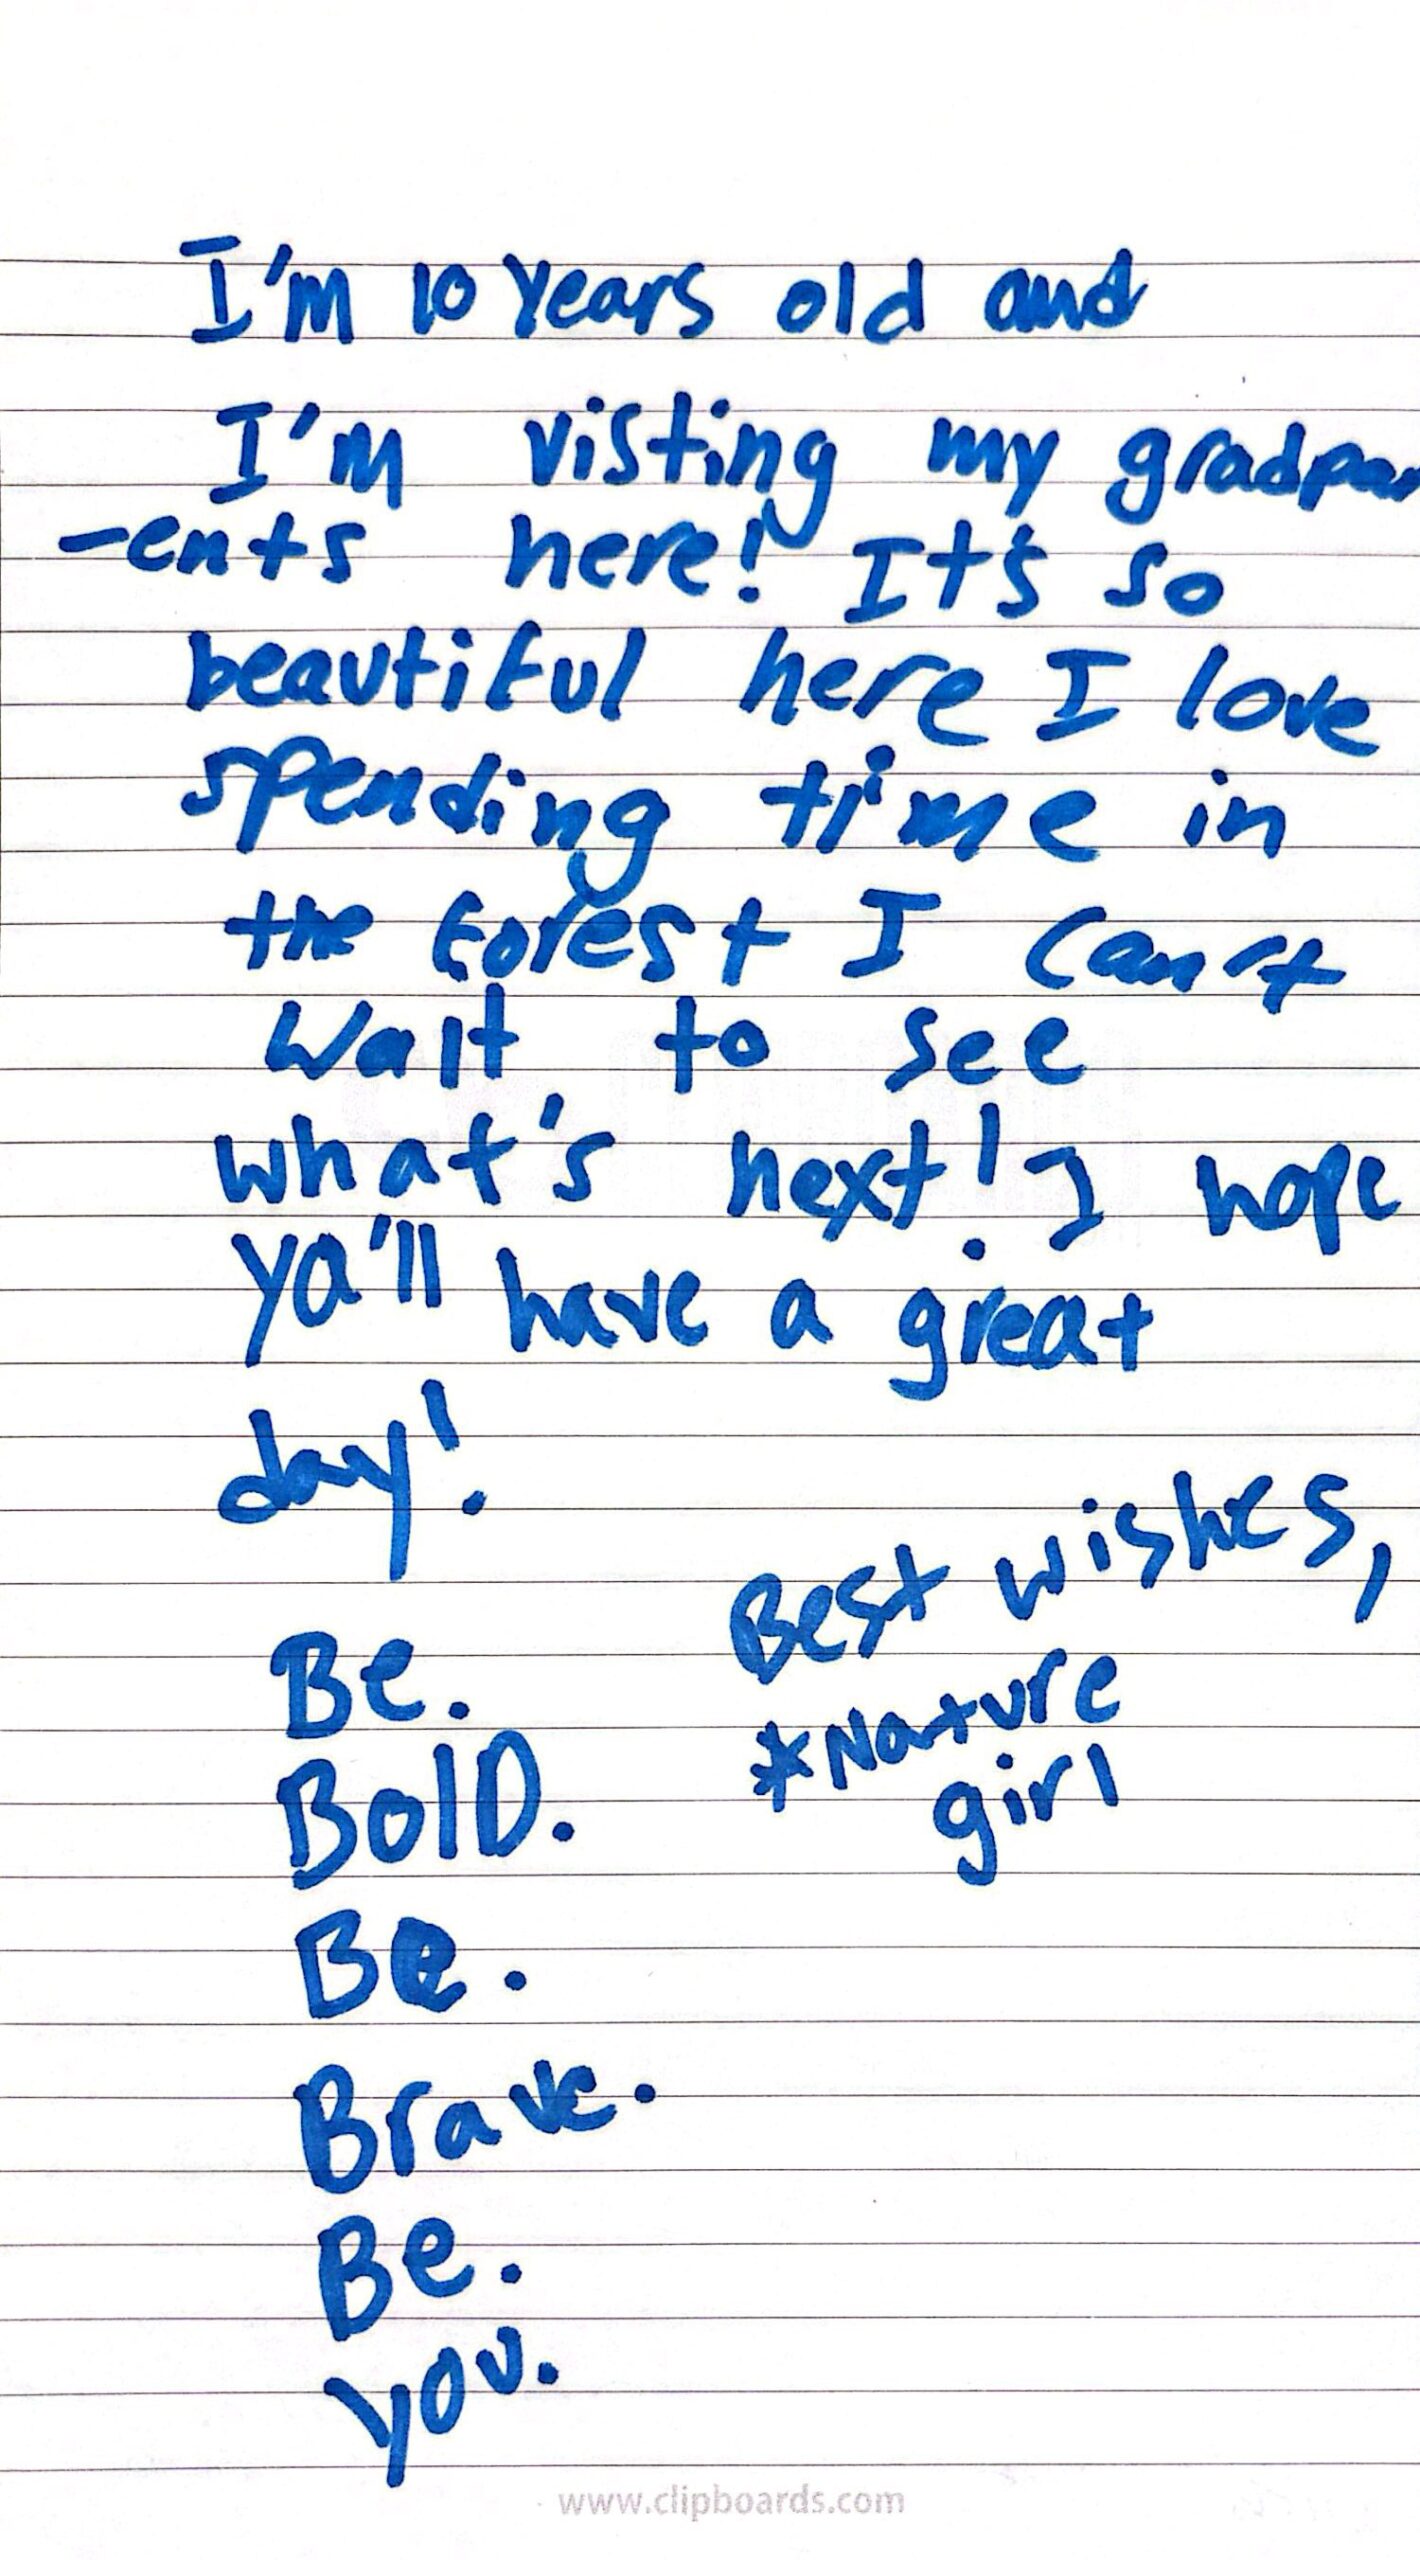 I'm 10 years old and
I'm visting my gradpar
-ents here! It's so
beautiful here I love
spending time in
the forest I can't
wait to see
what's next! I hope
ya'll have a great
day!
Best wishes,
*Nature
girl
Be.
BolD.
Be.
Brave.
Be.
you.
www.clipboards.com